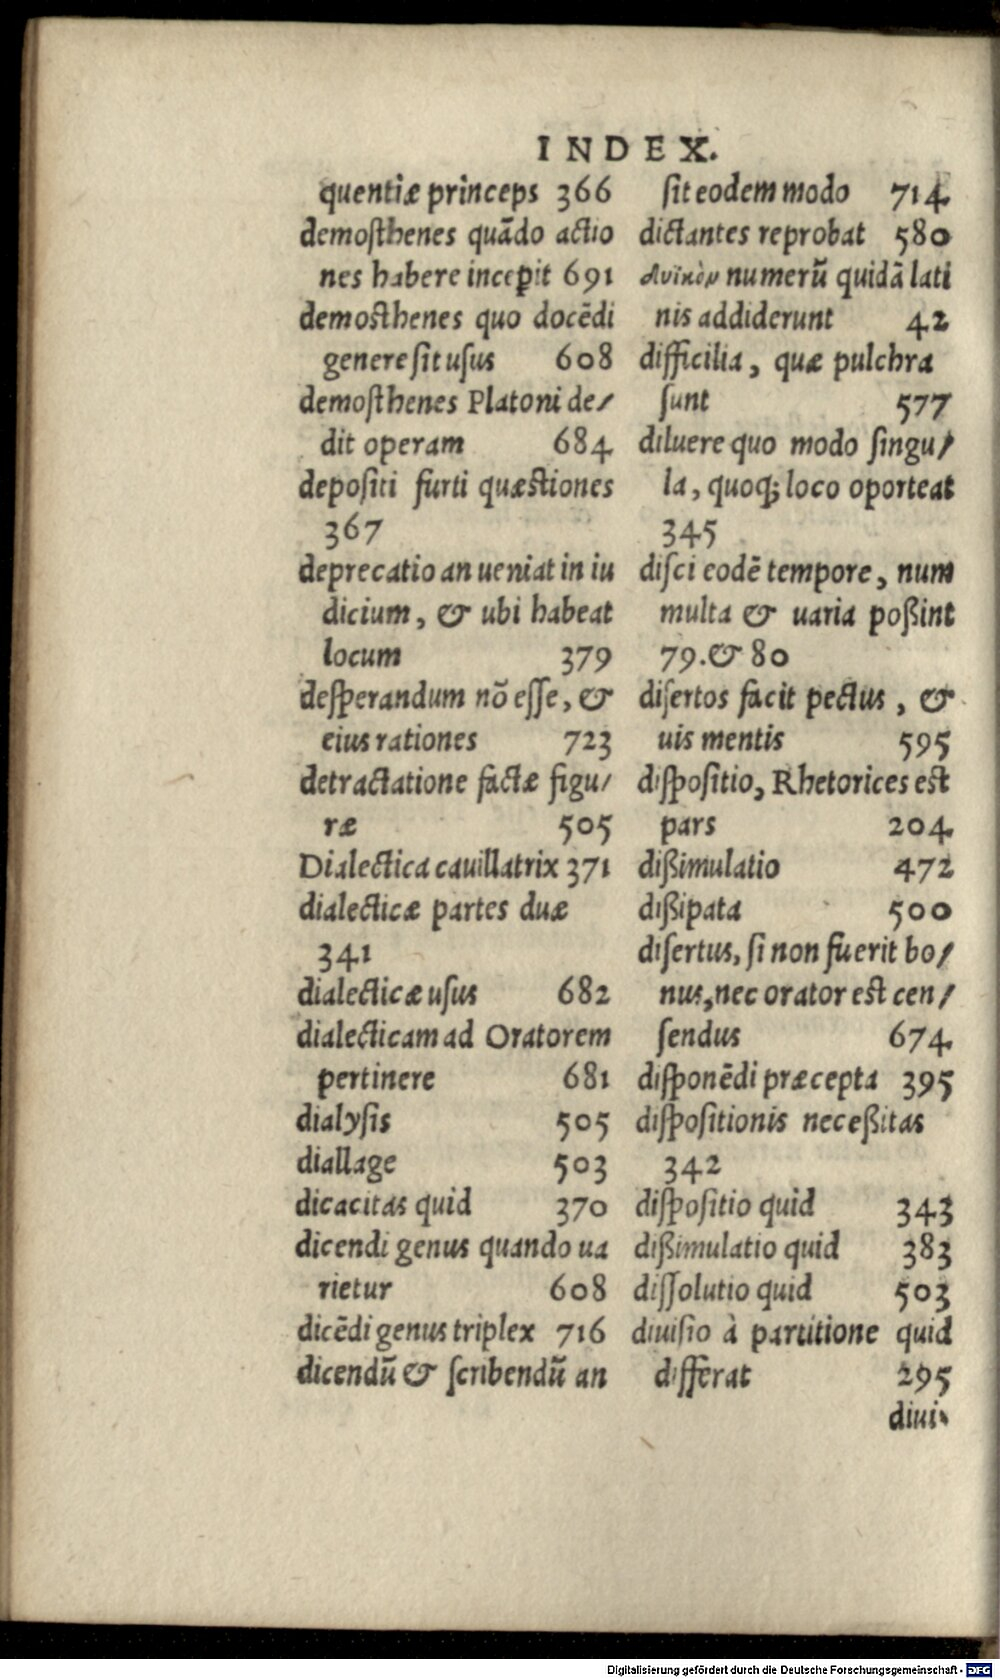 INDEX.
quentiæ princeps 366
demosthenes quādo actio
nes habere incepit 691
demosthenes quo docēdi
genere sit usus 608
demosthenes Platoni de/
dit operam 684
depositi furti quæstiones
367
deprecatio an ueniat in iu
dicium, & ubi habeat
locum 379
desperandum nō esse, &
eius rationes 723
detractatione factæ figu/
ræ 505
Dialectica cauillatrix 371
dialecticæ partes duæ
341
dialecticæ usus 682
dialecticam ad Oratorem
pertinere 681
dialysis 505
diallage 503
dicacitas quid 370
dicendi genus quando ua
rietur 608
dicēdi genus triplex 716
dicendū & scribendū an
sit eodem modo 714
dictantes reprobat 580
δυϊκὸν numerū quidā lati
nis addiderunt 42
difficilia, quæ pulchra
sunt 577
diluere quo modo singu/
la, quoq; loco oporteat
345
disci eodē tempore, num
multa & uaria poßint
79. & 80
disertos facit pectus, &
uis mentis 595
dispositio, Rhetorices est
pars 204
dißimulatio 472
dißipata 500
disertus, si non fuerit bo/
nus, nec orator est cen/
sendus 674
disponēdi præcepta 395
dispositionis neceßitas
342
dispositio quid 343
dißimulatio quid 383
dissolutio quid 503
diuisio à partitione quid
differat 295
diui-
Digitalisierung gefördert durch die Deutsche Forschungsgemeinschaft - DFG